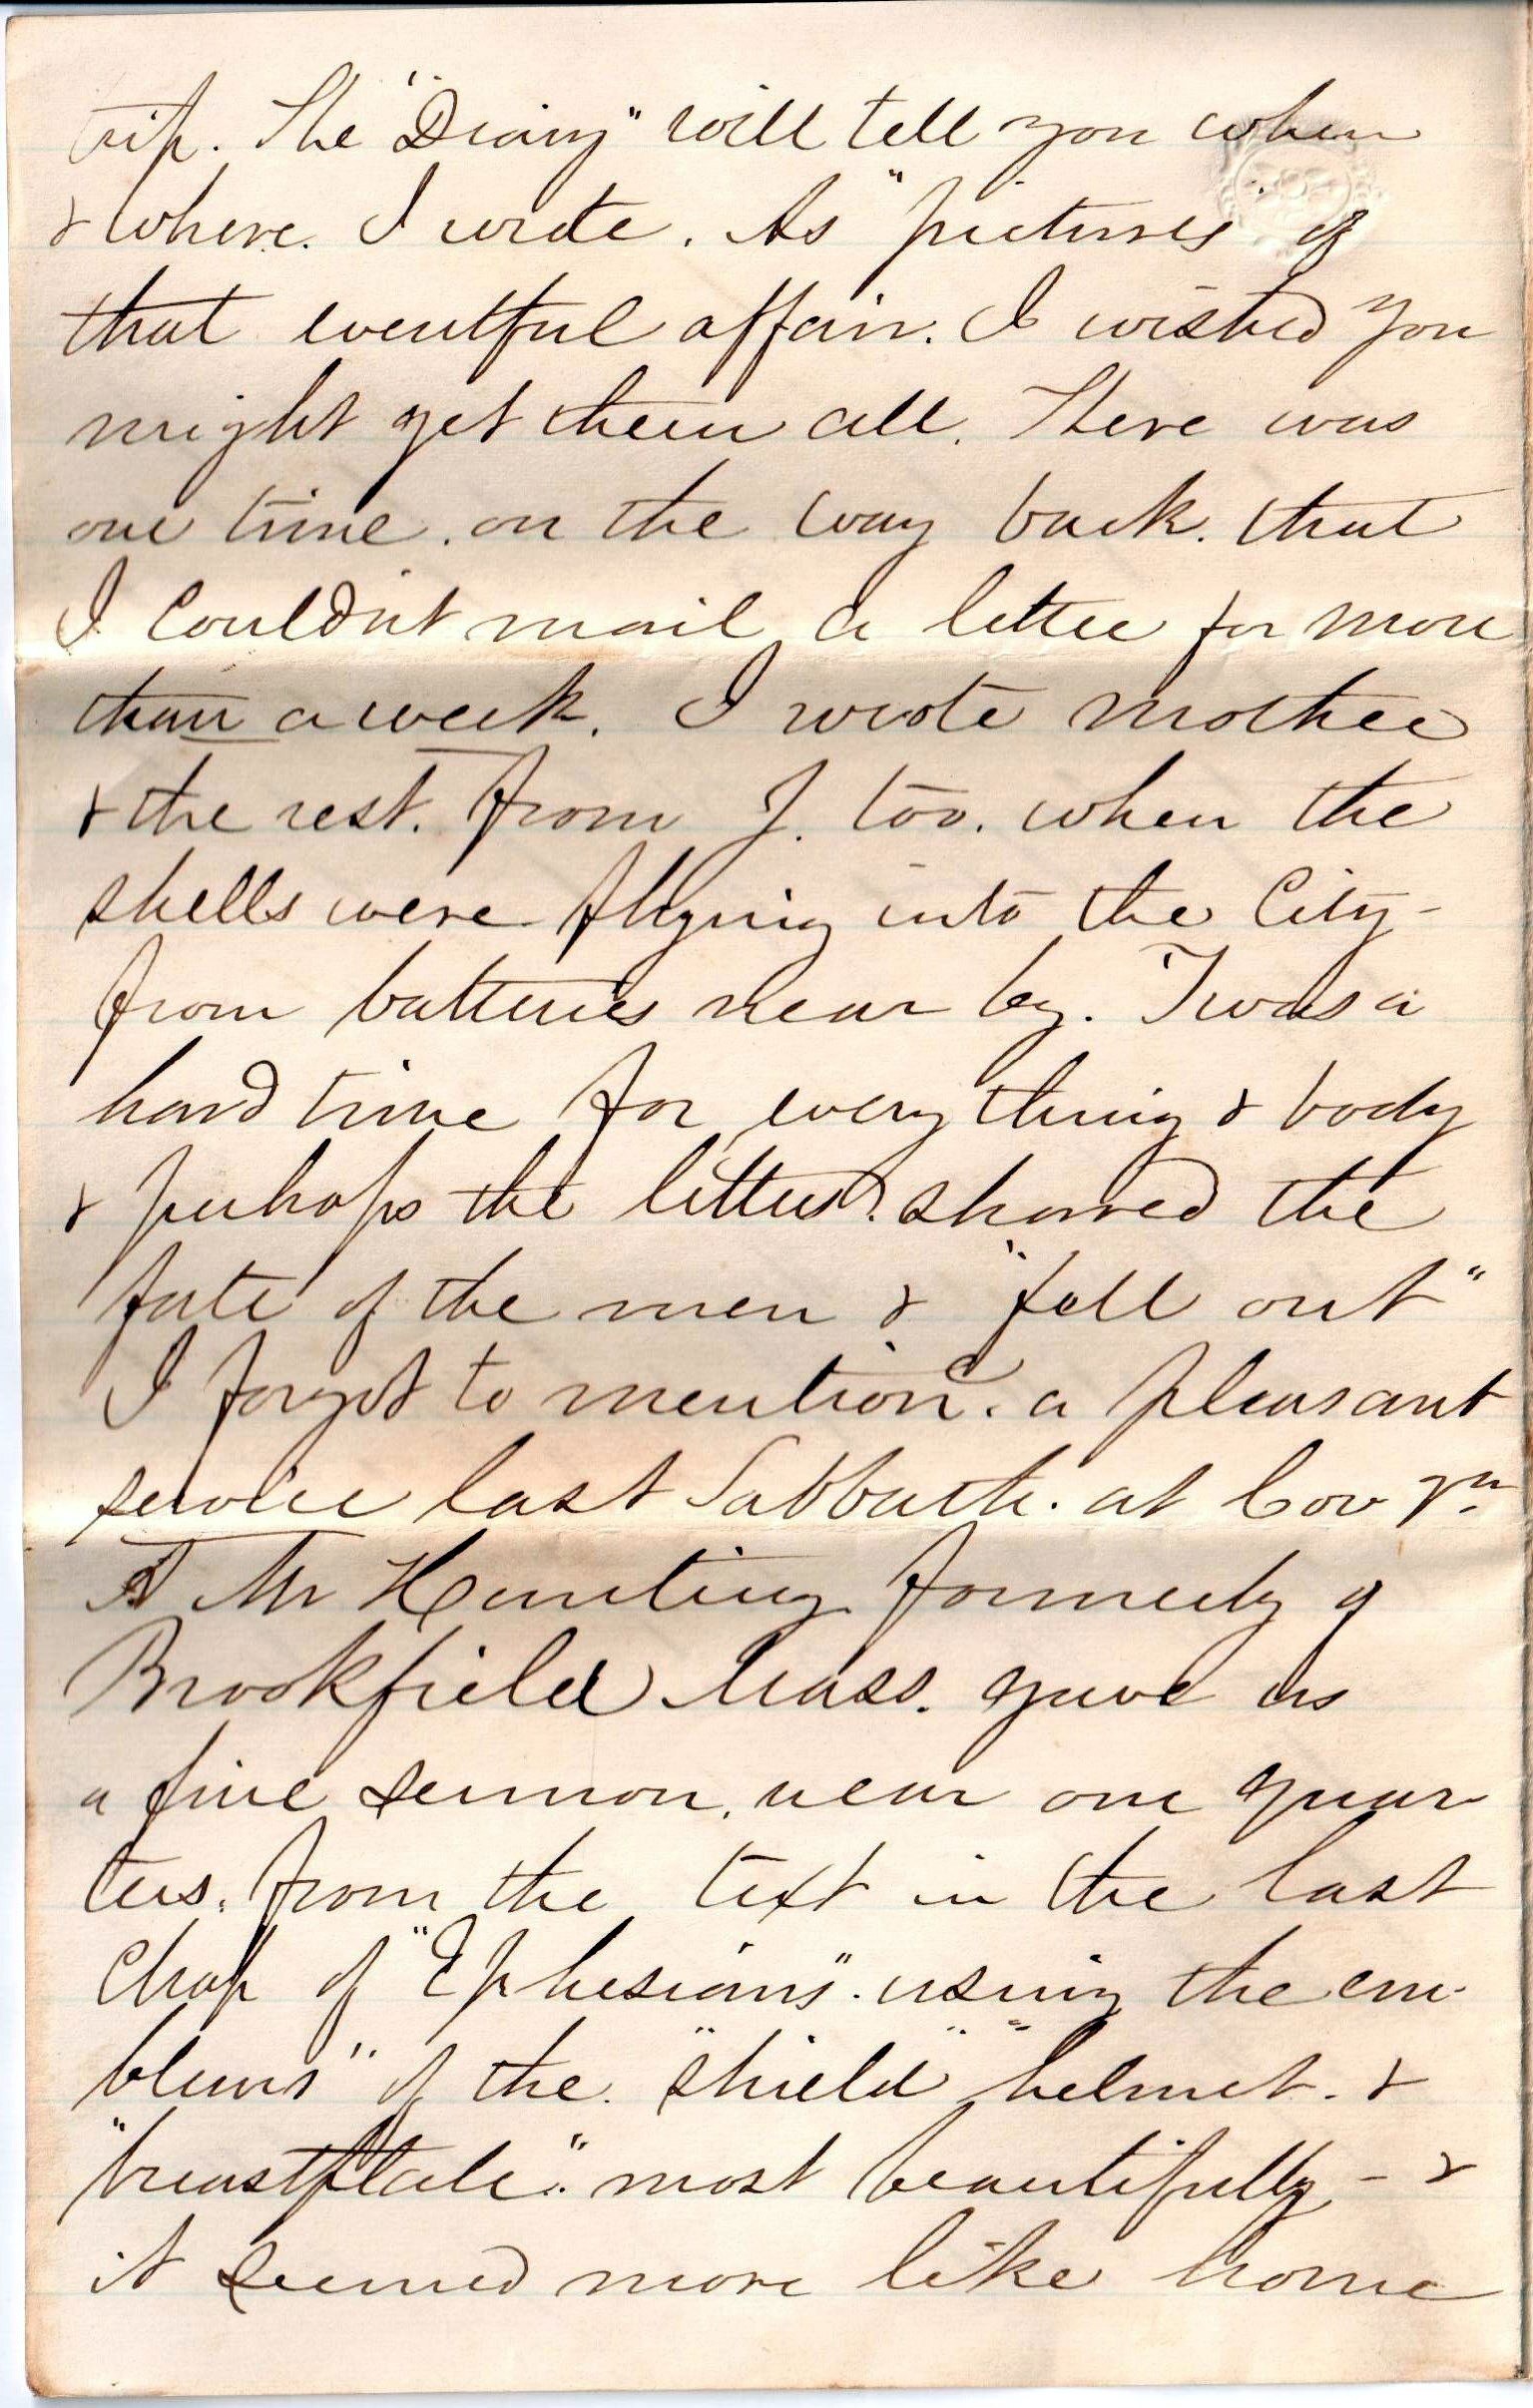 trip. The "Diary" will tell you when
& where. I wrote. As "pictures" of
that eventful affair. I wished you
might get them all. There was
one time. on the way back. that
I couldn't mail a letter for more
than a week. I wrote mother
& the rest. from J. too. when the
shells were flying into the City-
from batteries near by. Twas a
hard time for every thing & body
& perhaps the letters. shared the
fate of the men & "fell out"
I forgot to mention. a pleasant
service last Sabbath. at Gov
A Mr Hunting formerly of
Brookfield Mass. gave us
a fine sermon. near our quar-
ters. from the text in the last
Chap of "Ephesians". using the em-
blems" of the. "shield" "helmet. &
"breastplate". most beautifully - &
it seemed more like home